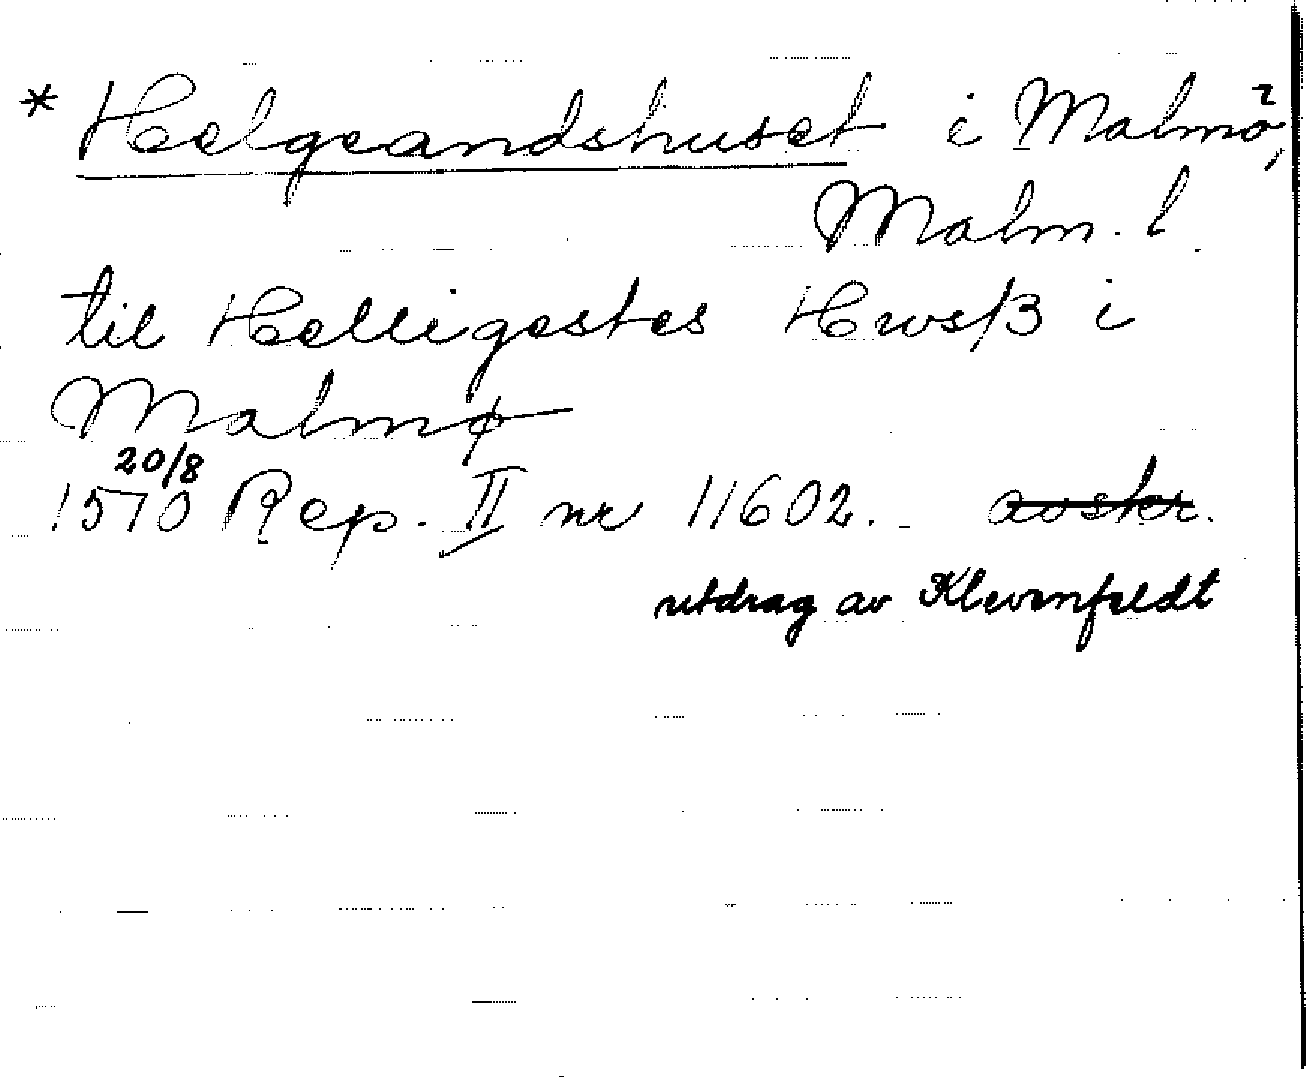 * Helgeandshuset i Malmö²,
Malm. l.
til Helligestes Hwsß i
Malmø
20/8
1570 Rep. II nr 11602. - avskr.
utdrag av Klevenfeldt